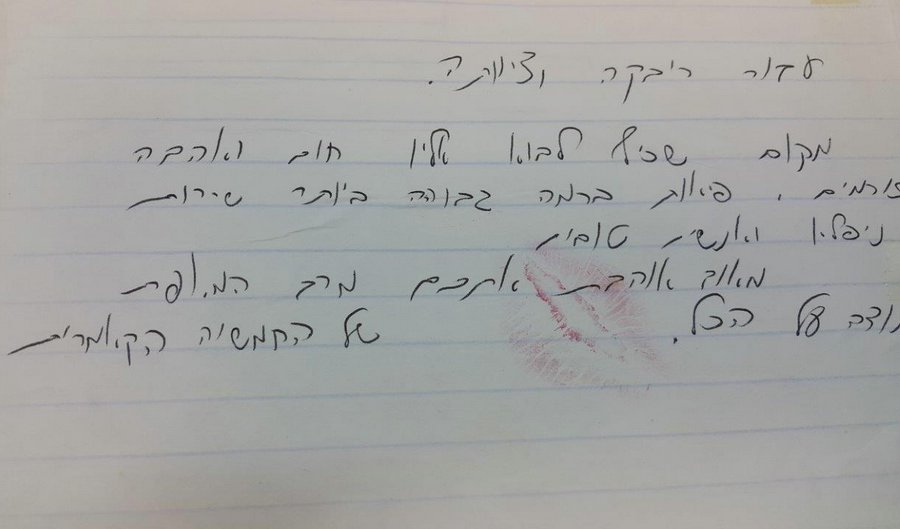 עבור ריבקה וציוותה.
מקום שכיף לבוא אליו חום ואהבה
זורמים, פיאות ברמה גבוהה ביותר שירות
ניפלא ואנשים טובים
מאוד אוהבת אתכם מרב
תודה על הכל. של החמישיה הקאמרית